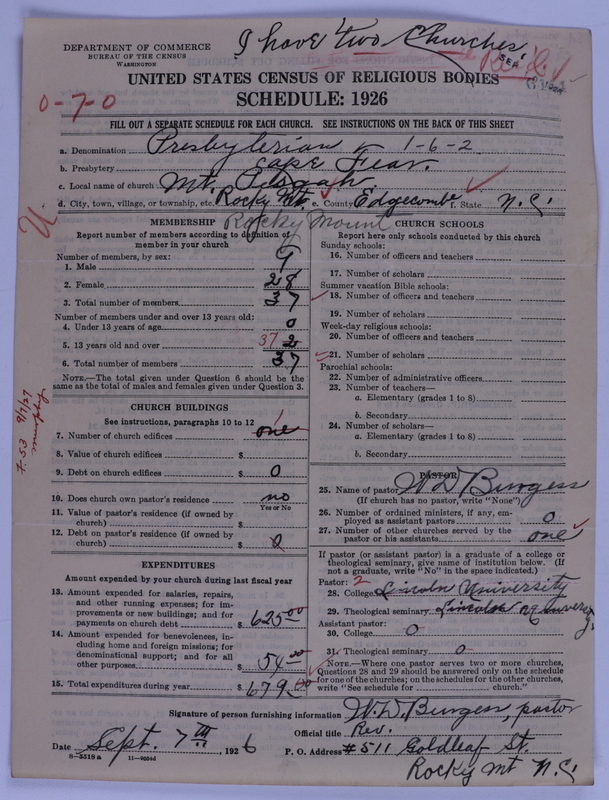 I have two Churches.
DEPARTMENT OF COMMERCE
BUREAU OF THE CENSUS
WASHINGTON
UNITED STATES CENSUS OF RELIGIOUS BODIES
SCHEDULE: 1926
0-7-0
FILL OUT A SEPARATE SCHEDULE FOR EACH CHURCH. SEE INSTRUCTIONS ON THE BACK OF THIS SHEET
a. Denomination Presbyterian 1-6-2
b. Presbytery Cape Fear.
c. Local name of church Mt. Pisgah
d. City, town, village, or township, etc. Rocky Mt. e. County Edgecombe f. State N.C.
Rocky Mount
MEMBERSHIP
Report number of members according to definition of member in your church
Number of members, by sex:
1. Male 9
2. Female 28
3. Total number of members 37
Number of members under and over 13 years old:
4. Under 13 years of age 0
5. 13 years old and over 37 2
6. Total number of members 37
NOTE.—The total given under Question 6 should be the same as the total of males and females given under Question 3.
CHURCH BUILDINGS
See instructions, paragraphs 10 to 12
7. Number of church edifices one
8. Value of church edifices $
9. Debt on church edifices $ 0
10. Does church own pastor's residence no
Yes or No
11. Value of pastor's residence (if owned by church) $
12. Debt on pastor's residence (if owned by church) $ 0
EXPENDITURES
Amount expended by your church during last fiscal year
13. Amount expended for salaries, repairs, and other running expenses; for improvements or new buildings; and for payments on church debt $ 625.00
14. Amount expended for benevolences, including home and foreign missions; for denominational support; and for all other purposes $ 54.00
15. Total expenditures during year $ 679.00
CHURCH SCHOOLS
Report here only schools conducted by this church
Sunday schools:
16. Number of officers and teachers
17. Number of scholars
Summer vacation Bible schools:
18. Number of officers and teachers
19. Number of scholars
Week-day religious schools:
20. Number of officers and teachers
21. Number of scholars
Parochial schools:
22. Number of administrative officers
23. Number of teachers—
a. Elementary (grades 1 to 8)
b. Secondary
24. Number of scholars—
a. Elementary (grades 1 to 8)
b. Secondary
PASTOR
25. Name of pastor W D Burgess
(If church has no pastor, write "None")
26. Number of ordained ministers, if any, employed as assistant pastors 0
27. Number of other churches served by the pastor or his assistants one
If pastor (or assistant pastor) is a graduate of a college or theological seminary, give name of institution below. (If not a graduate, write "No" in the space indicated.)
Pastor: 2
28. College Lincoln University
29. Theological seminary Lincoln University
Assistant pastor:
30. College 0
31. Theological seminary 0
NOTE.—Where one pastor serves two or more churches, Questions 28 and 29 should be answered only on the schedule for one of the churches; on the schedules for the other churches, write "See schedule for church."
Signature of person furnishing information W.D. Burgess, pastor
Official title Rev.
Date Sept. 7th, 1926
P. O. Address #511 Goldleaf St.
Rocky Mt N.C.
8-5518a
7.53 9/7/27
Murphy